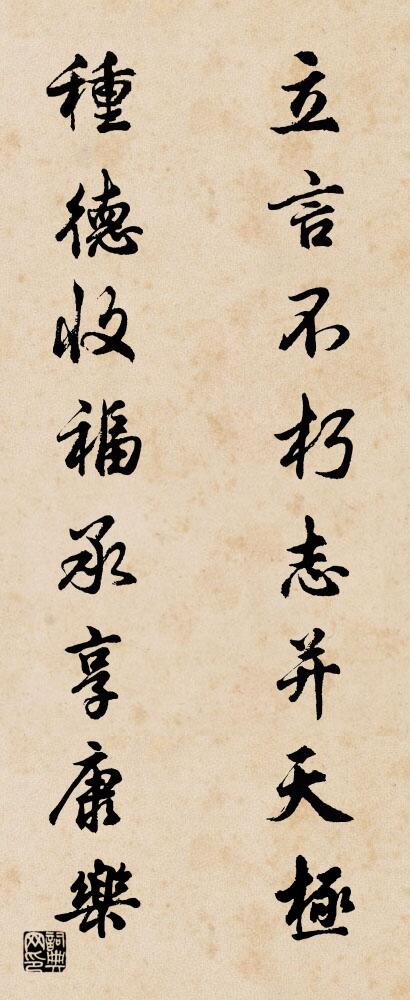 立言不朽志并天極
種德收福永享康樂
詞典网印